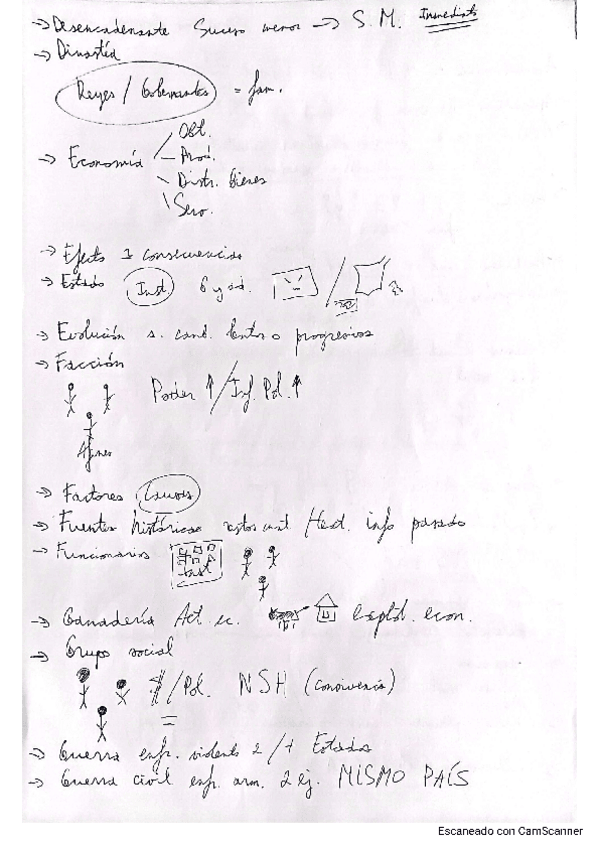 → Desencadenante Suceso menor → S. M. Inmediato
→ Dinastía
Reyes / Gobernantes = fam.
→ Economía
Obt.
Prod.
Distr. bienes
Serv.
→ Efecto 1 consecuencias
→ Estado Inst
→ Evolución s. camb. lento o progresivos
→ Facción
Poder ↑ / Inf. Pol. ↑
Afines
→ Factores Causas
→ Fuentes históricas Hast. info pasado
→ Funcionarios Inst
→ Ganadería Act. ec. Explot. econ.
→ Grupo social
$ / Pol. NSH (convivencia)
→ Guerra enfr. violento 2 / + Estados
→ Guerra civil enfr. arm. 2 ej. MISMO PAÍS
Escaneado con CamScanner